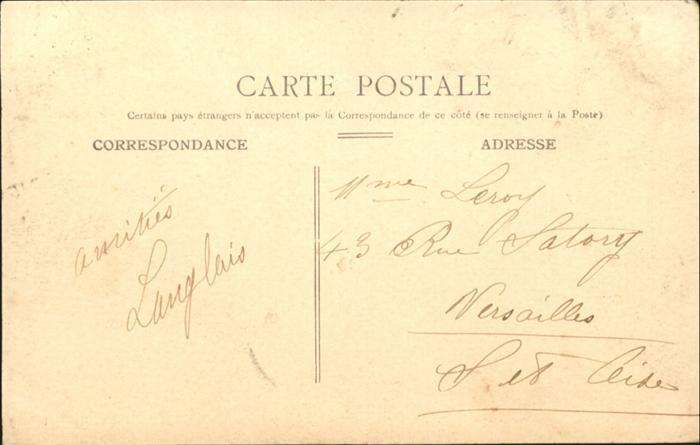 CARTE POSTALE
Certains pays étrangers n'acceptent pas la Correspondance de ce côté (se renseigner à la Poste)
CORRESPONDANCE
amitiés
Langlais
ADRESSE
Mme Leroy
43 Rue Satory
Versailles
S et Oise